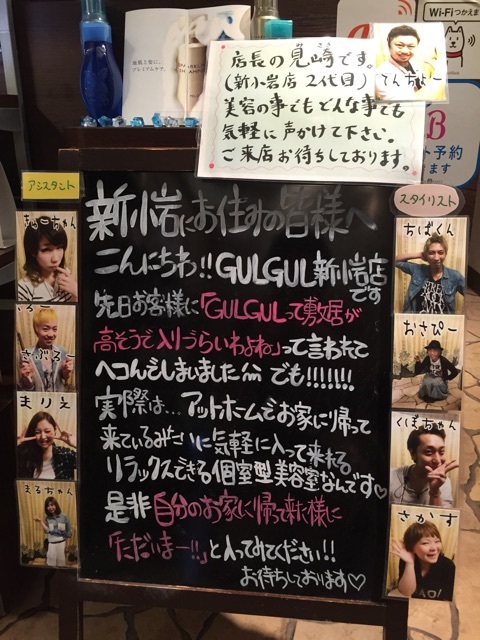 店長の見崎です。
(新小岩店 2代目)
美容の事でもどんな事でも
気軽に声かけて下さい。
ご来店お待ちしております。
てんちょー
Wi-Fiつかえま
ト予約
ます
アシスタント
スタイリスト
新小岩にお住みの皆様へ
こんにちわ!!GULGUL新小岩店
です
先日お客様に「GULGULって敷居が
高そうで入りづらいわよね」って言われて
ヘコんでしまいました でも!!!!!!!
実際は…アットホームでお家に帰って
来ているみたいに気軽に入って来れる
リラックスできる個室型美容室なんです♡
是非自分のお家に帰って来た様に
「ただいまー!!」と入ってみてください!!
お待ちしております♡
さぶろー
まりえ
まるちゃん
ちばくん
おさぴー
くぼちゃん
さかす